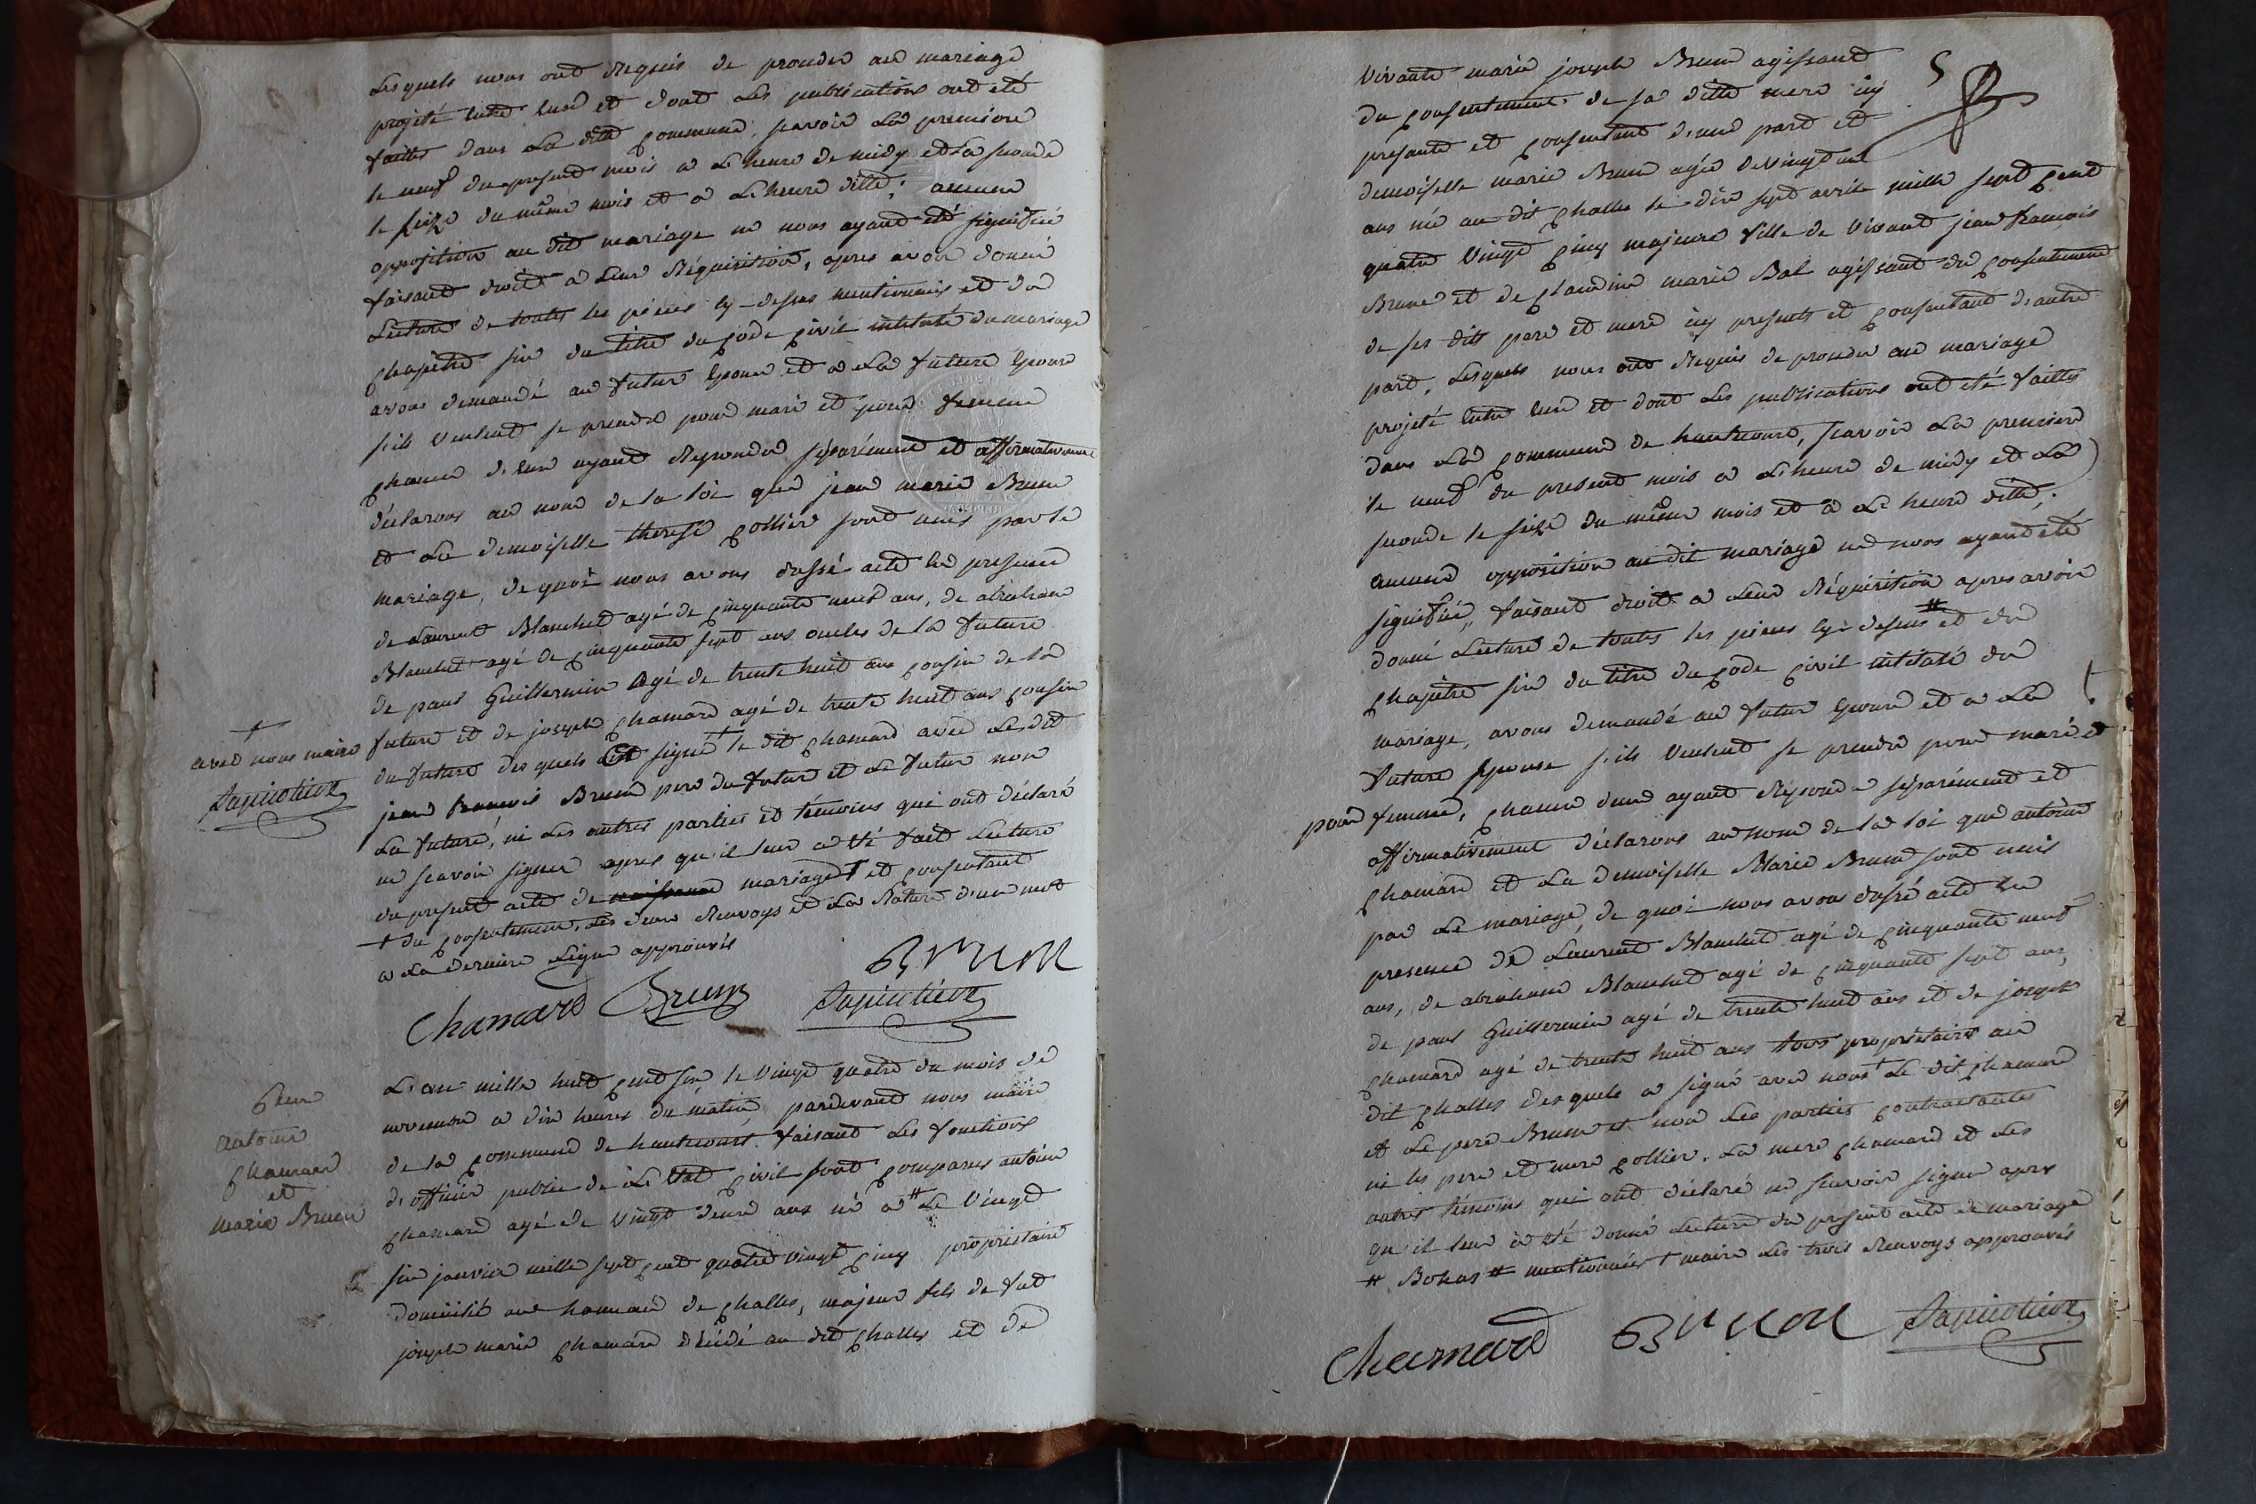 Lesquels nous ont requis de proceder au mariage
projeté entre eux et dont les publications ont été
faittes dans La ditte commune, scavoir La premiere
le neuf du present mois a L'heure de midy et La seconde
le seize du même mois et a L'heure ditte; aucune
opposition au dit mariage ne nous ayant été signifiée
faisant droit a Leur réquisition, apres avoir donné
Lecture de toutes les pieces cy-dessus mentionnées et du
chapitre six du titre du code civil intitulé du mariage
avons demandé au futur Epoux et a La future Epouse
s'ils veulent se prendre pour mari et pour femme
chacun d'eux ayant répondu séparément et affirmativement
déclarons au nom de la loi que jean marie Brun
et La demoiselle therese Collier sont unis par le
mariage, de quoi nous avons dressé acte En presence
de Laurent Blanchet agé de cinquante neuf ans, de abraham
Blanchet agé de cinquante sept ans oncles de la future
de paul Guillermin agé de trente huit ans cousin de la
future et de joseph chamard agé de trente huit ans cousin
du futur des quels ont signé + le dit chamard avec Le dit
jean francois Brun pere du futur et Le futur non
La future, ni Les autres parties et témoins qui ont déclaré
ne scavoir signer apres qu'il leur a été fait Lecture
du present acte de naissance mariage + et consentent
+ du consentement, Les deux Renvoys et La Rature d'un mot
a La derniere Ligne approuvés
+
avec nous maire
Chamard Brun BRUN
L'an mille huit cent six le vingt quatre du mois de
novembre a dix heures du matin, pardevant nous maire
de La commune de hautecourt faisant Les fonctions
d'officier public de L'Etat civil sont comparus antoine
chamard agé de vingt deux ans né a # Le vingt
six janvier mille sept cent quatre vingt cinq proprietaire
domicilié au hameau de challes, majeur fils de fut
joseph marie chamard décédé au dit challes et de
Entre
antoine
chamard
et
marie Brun
5
vivante marie joseph Brun agissant
du consentement de sa ditte mere icy
presente et consentant d'une part et
demoiselle marie Brun agée de vingt un
ans née au dit challes le dix sept avril mille sept cent
quatre vingt cinq majeure fille de vivant jean francois
Brun et de claudine marie Bal agissant du consentement
de ses dits pere et mere icy presents et consentant d'autre
part, Lesquels nous ont requis de proceder au mariage
projeté entre eux et dont Les publications ont été faittes
dans La commune de hautecourt, scavoir La premiere
le neuf du present mois a L'heure de midy et La
seconde le seize du même mois et a L'heure ditte;
aucune opposition au dit mariage ne nous ayant été
signifiée, faisant droit a Leur réquisition apres avoir
donné Lecture de toutes les pieces cy-dessus # et du
chapitre six du titre du code civil intitulé du
mariage, avons demandé au futur Epoux et a La
future Epouse s'ils veulent se prendre pour mari et
pour femme, chacun d'eux ayant répondu séparément et
affirmativement déclarons au nom de la loi que antoine
chamard et La demoiselle Marie Brun sont unis
par Le mariage, de quoi nous avons dressé acte En
presence de Laurent Blanchet agé de cinquante neuf
ans, de abraham Blanchet agé de cinquante sept ans,
de paul Guillermin agé de trente huit ans et de joseph
chamard agé de trente huit ans tous proprietaires au
dit challes desquels a signé avec nous + Le dit chamard
et Le pere Brun et non Les parties contractantes
ni les pere et mere Collier. La mere chamard et Les
autres témoins qui ont déclaré ne scavoir signer apres
qu'il leur a été donné Lecture du present acte de mariage
# Bohas # mentionnées + maire Les trois Renvoys approuvés
Chamard BRUN